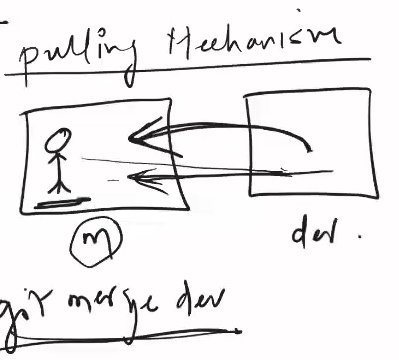 pulling Mechanism
m
dev.
git merge dev